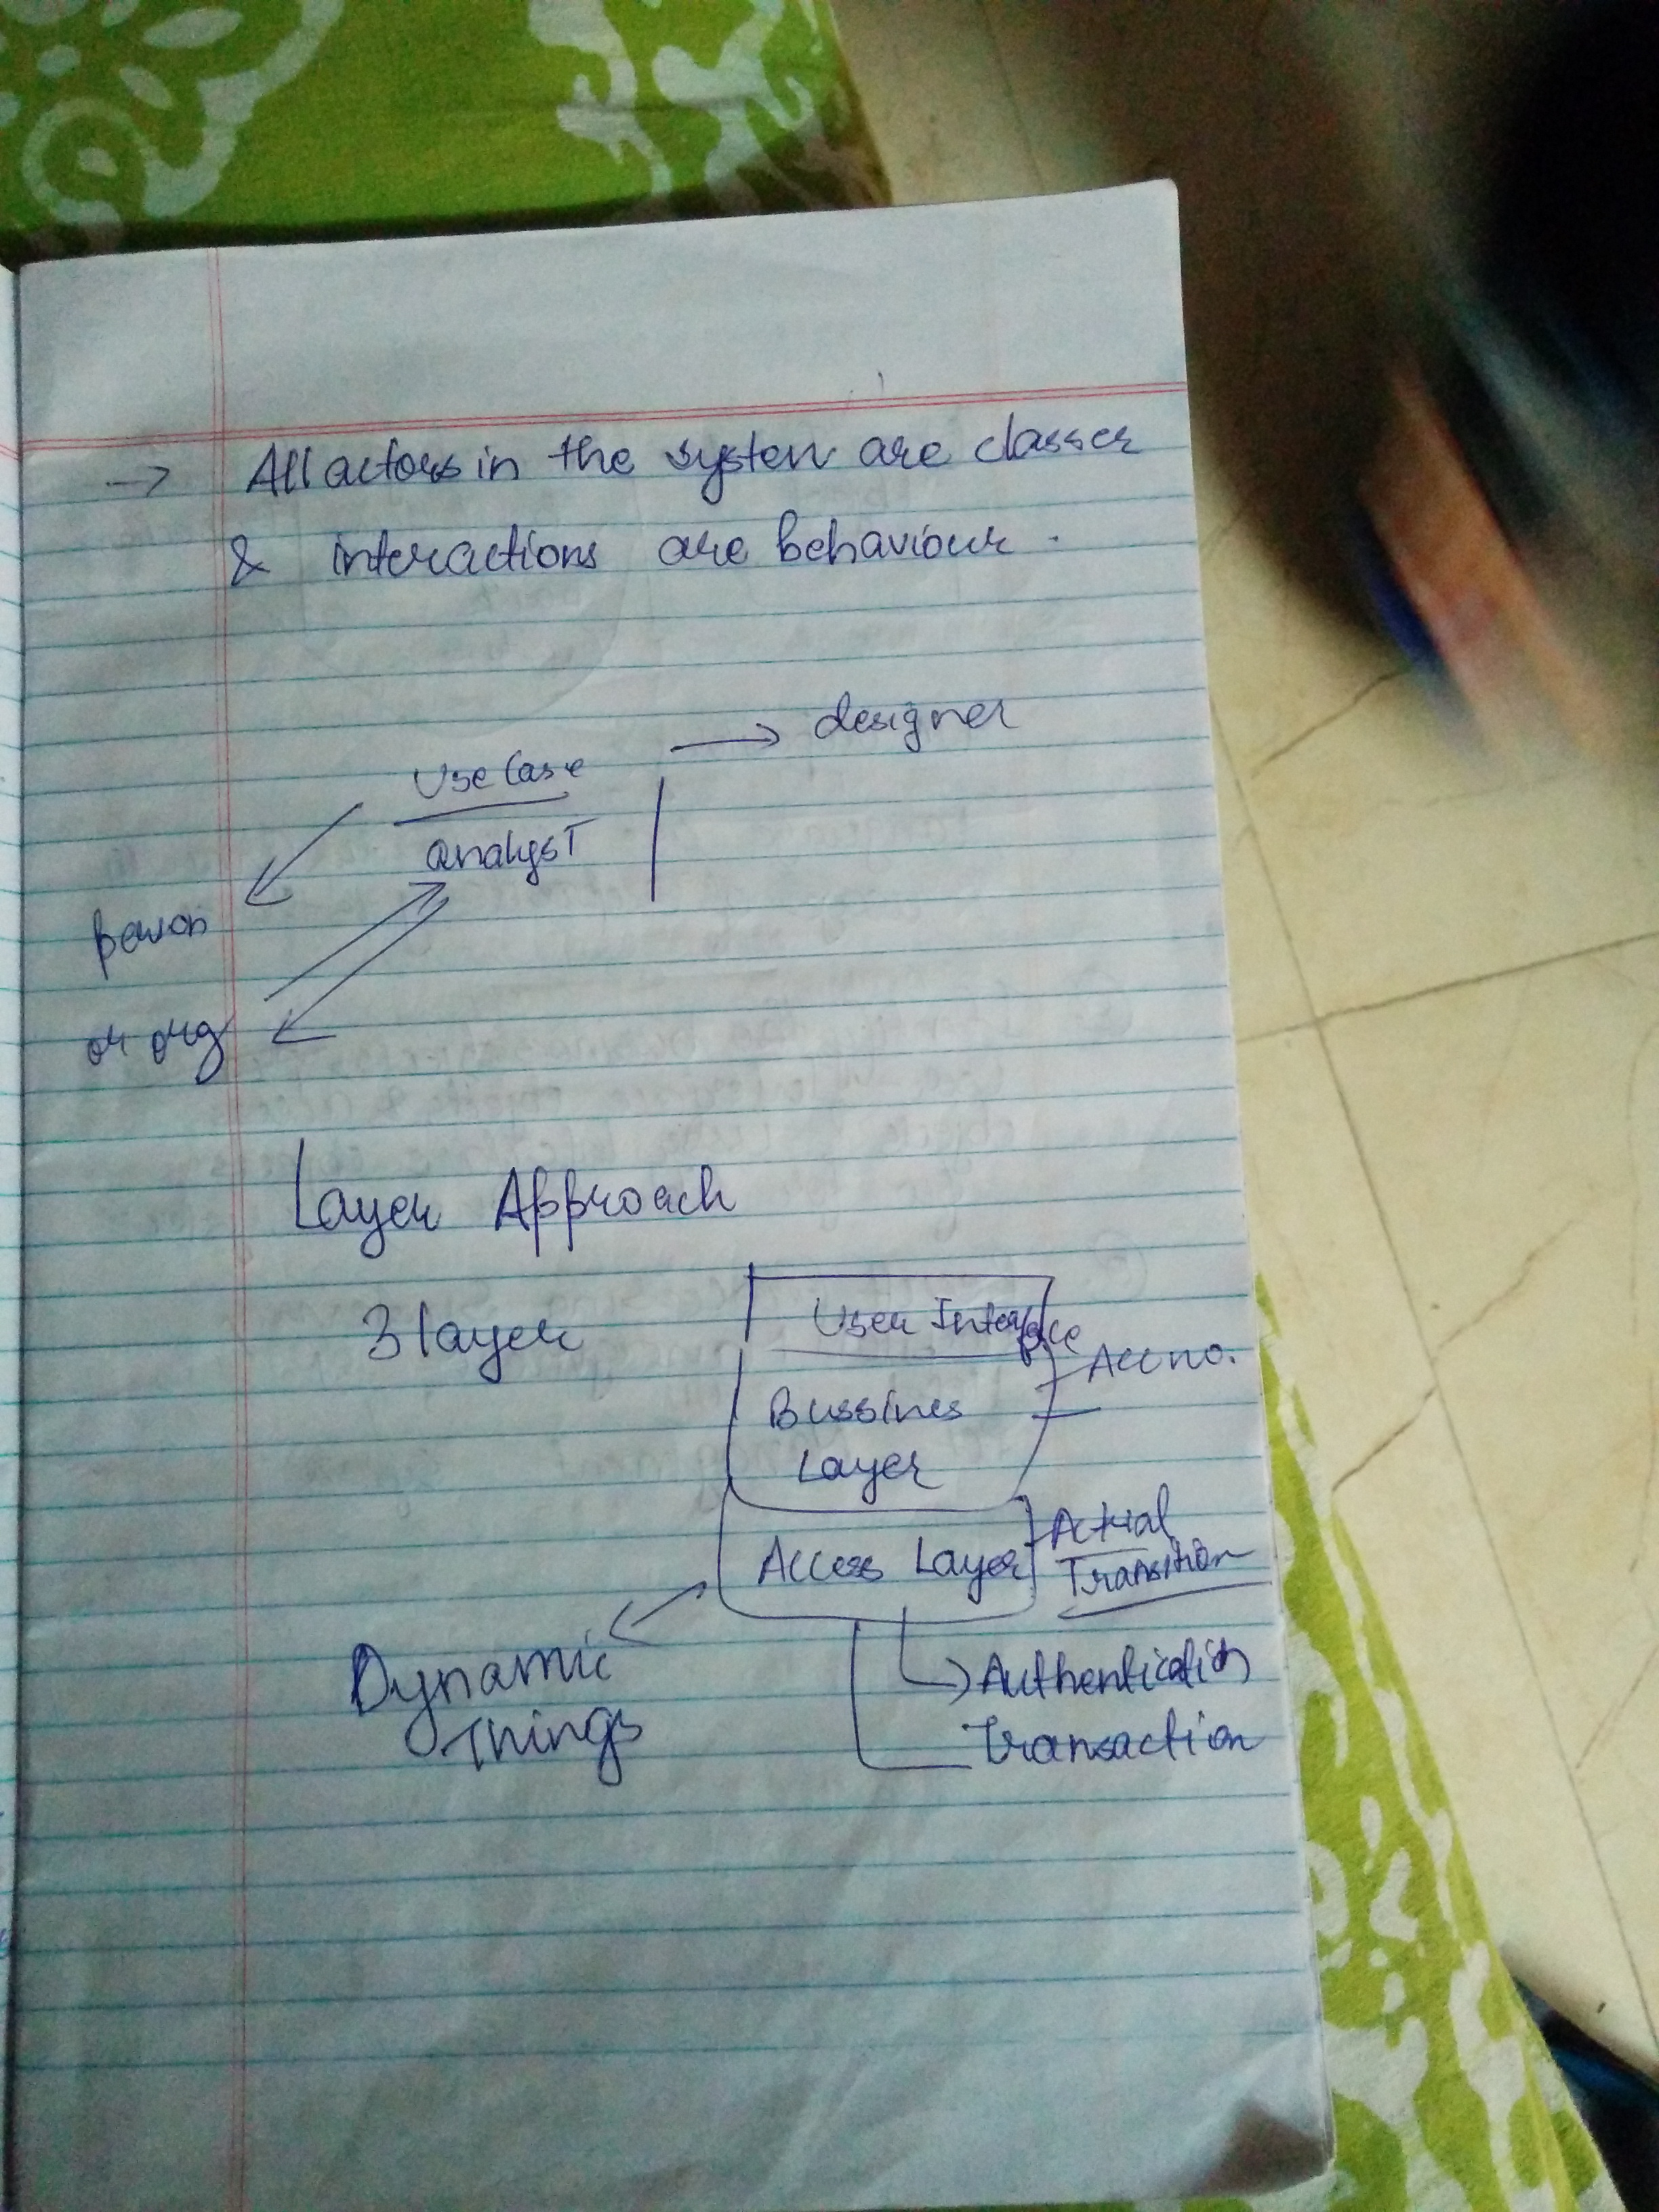 → All actors in the system are classes
& interactions are behaviour.
→ designer
Use Case
analyst
person
or org
Layer Approach
3 layer
User Interface
Acc no.
Bussines
Layer
Access Layer
Actual
Transition
Dynamic
Things
Authentication
Transaction